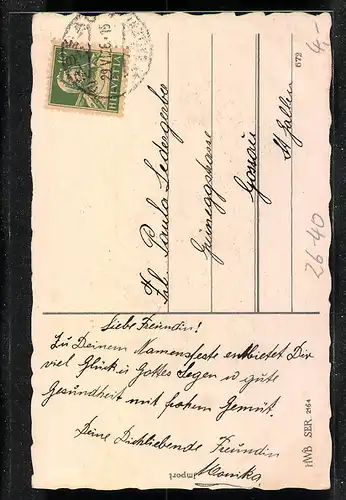 HELVETIA
29.VI.26.-15
4,-
672
Frl. Paula Ledergerber
Grüneggstrasse
Gossau
St. Gallen
26-40
Liebe Freundin!
Zu Deinem Namensfeste entbietet Dir
viel Glück u Gottes Segen u gute
Gesundheit mit frohem Gemüt.
Deine Dichliebende Freundin
Monika
Import
HWB SER. 2164